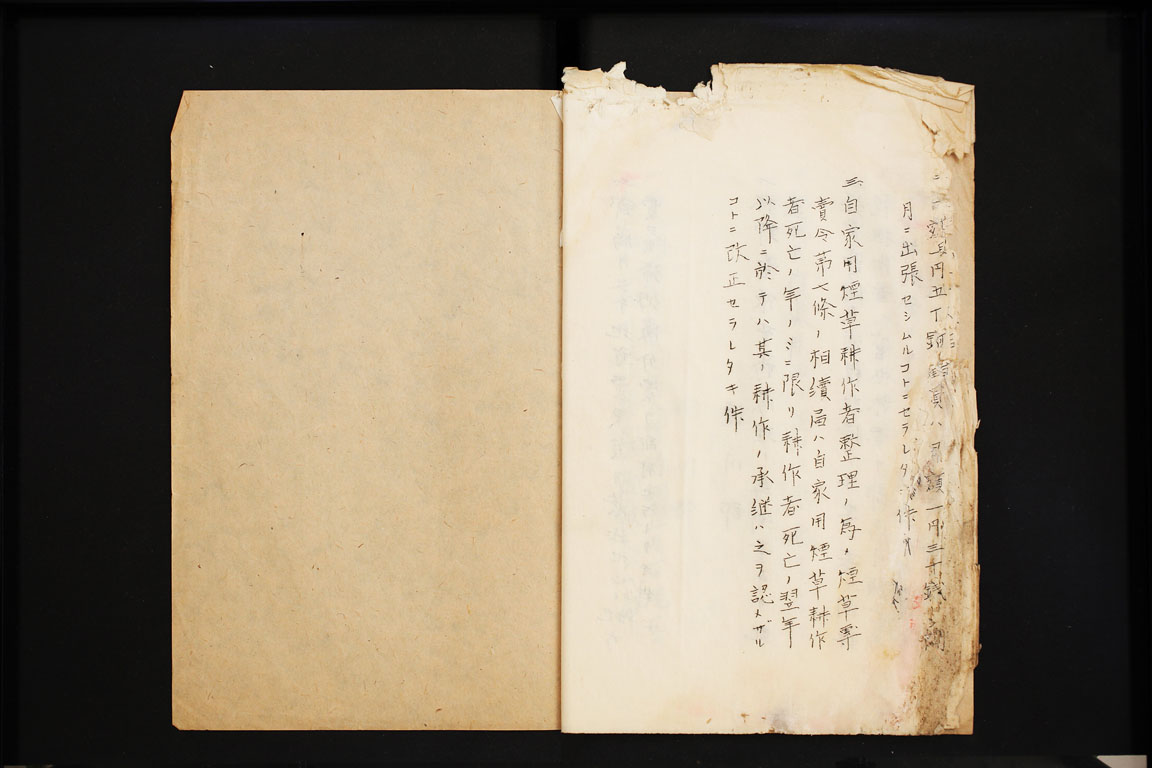 員ハ月額一円三十銭
月ニ出張セシムルコトニセラレタ件
三、自家用煙草耕作者整理ノ為メ煙草専
賣令第七條ノ相續届ハ自家用煙草耕作
者死亡ノ年ノミニ限リ耕作者死亡ノ翌年
以降ニ於テハ其ノ耕作ノ承継ハ之ヲ認メザル
コトニ改正セラレタキ件